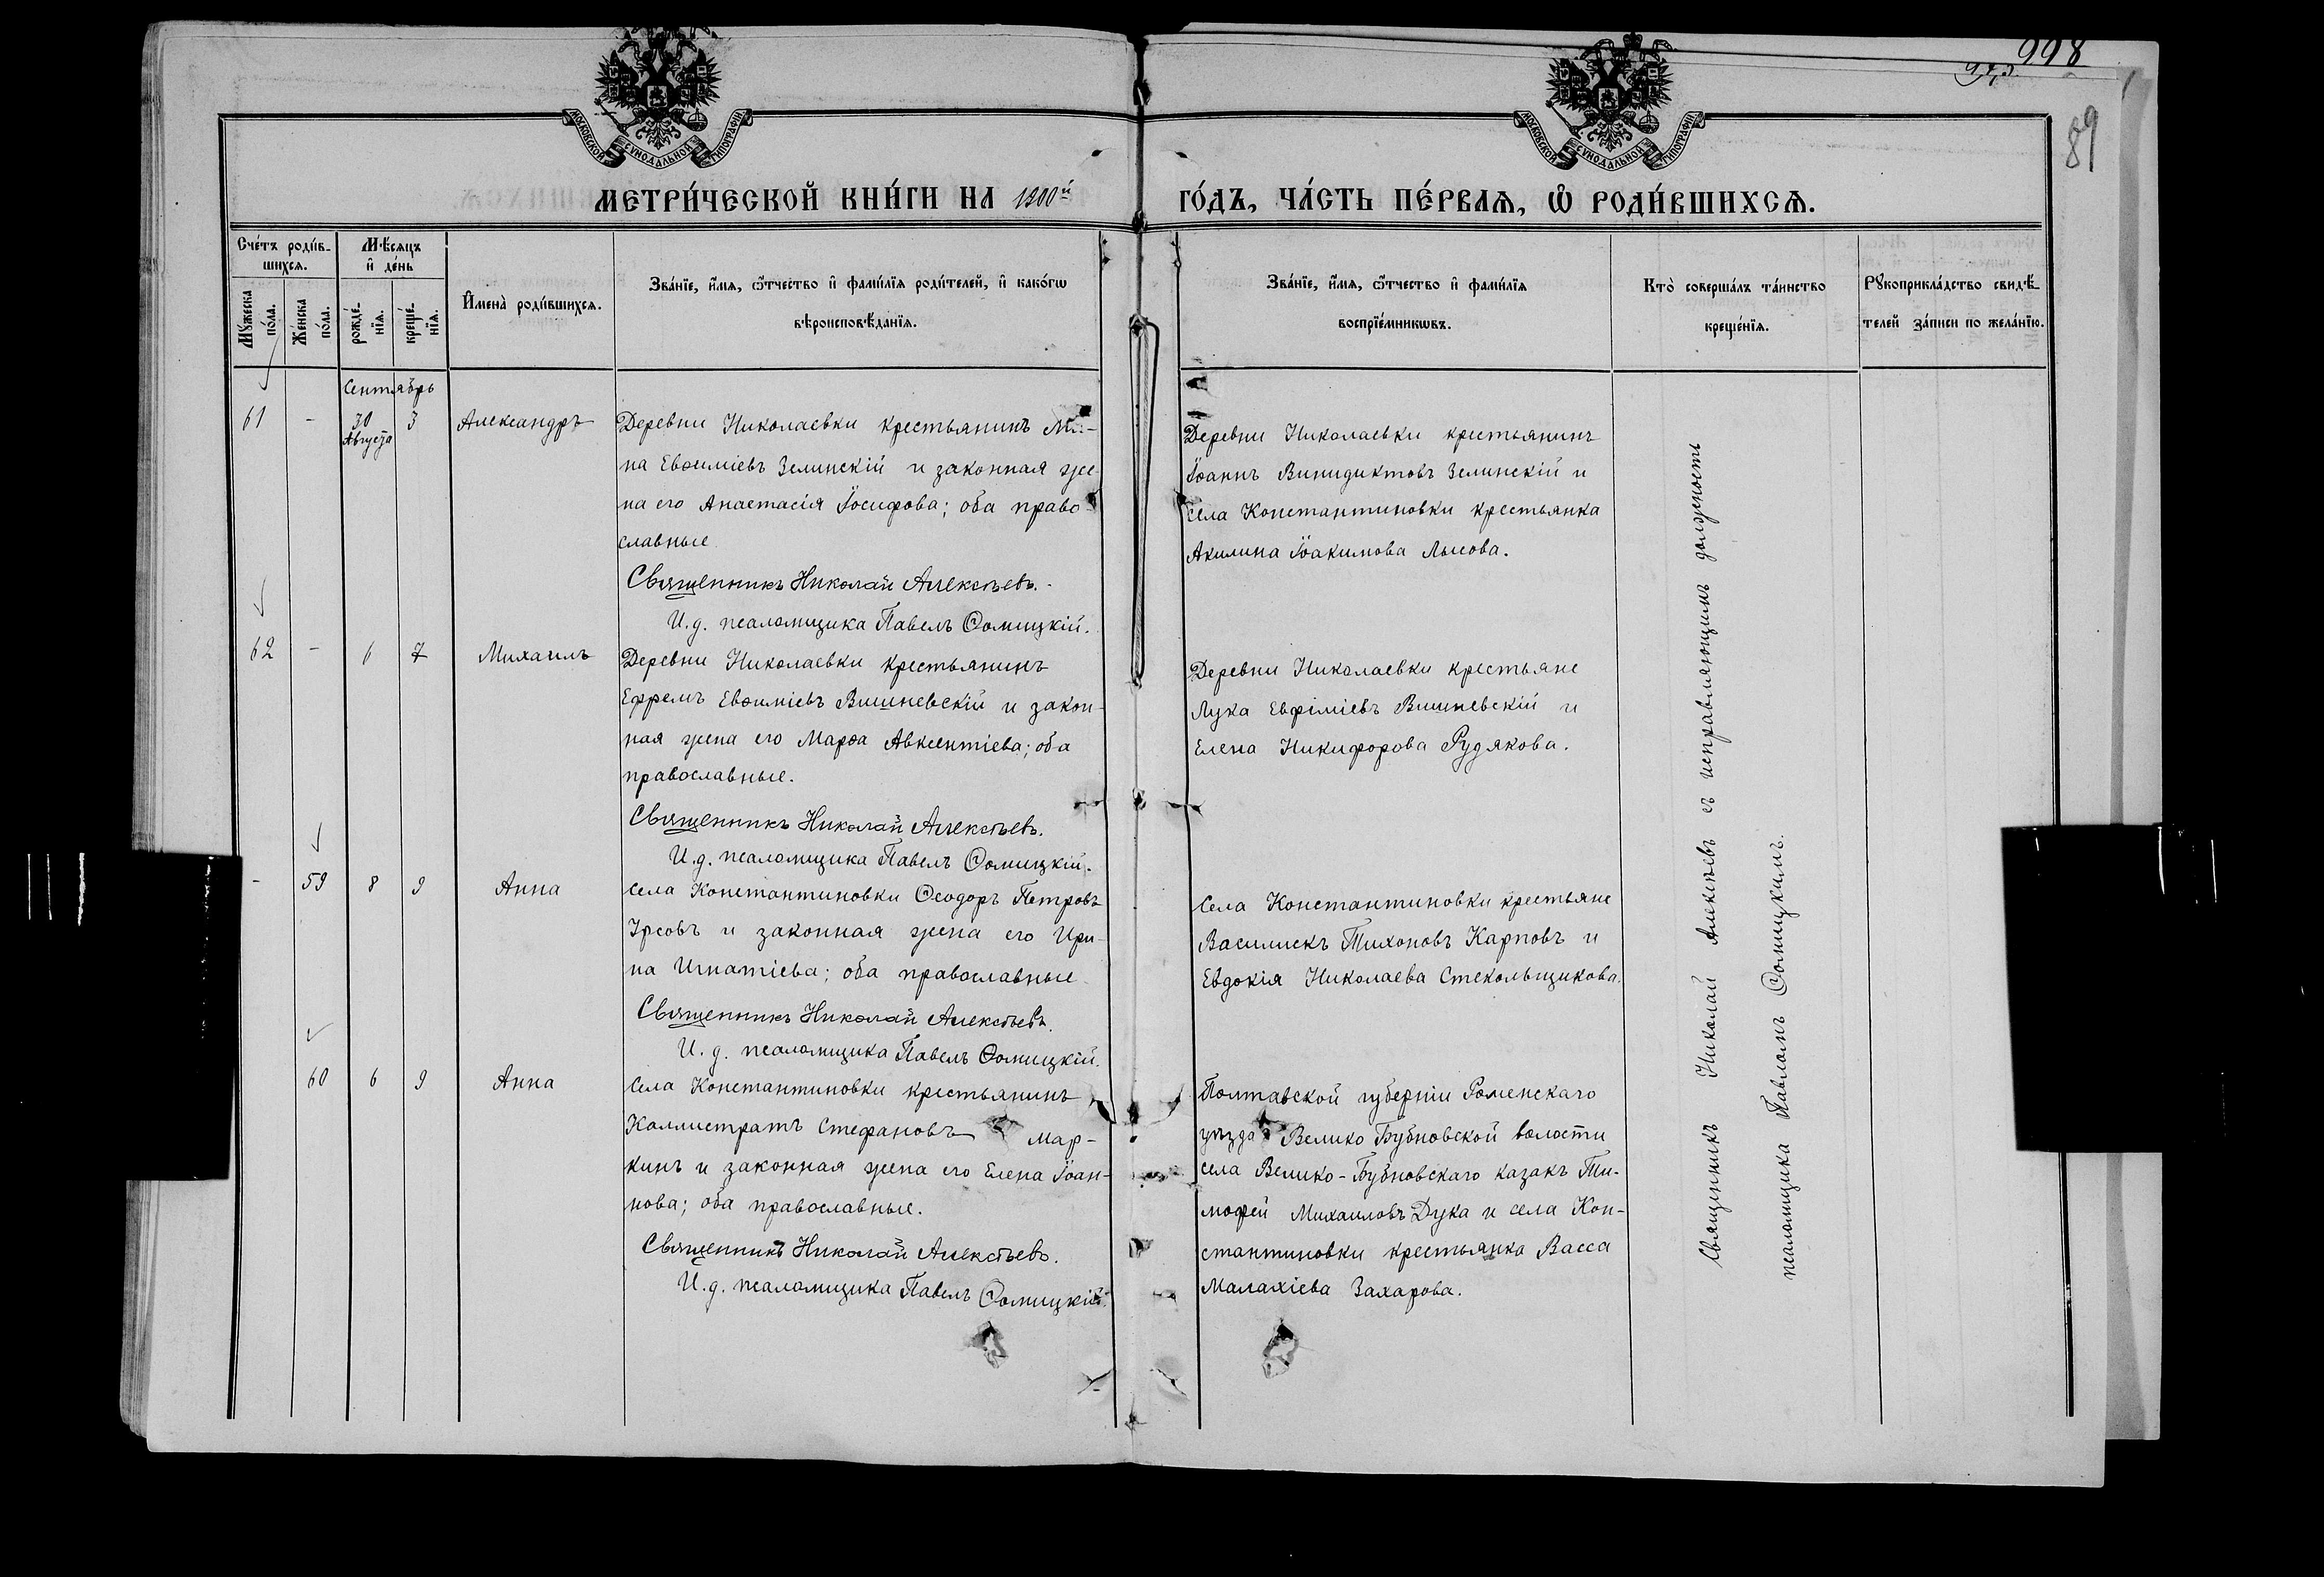 998
89
МОСКОВСКОЙ СѴНОДАЛЬНОЙ ТИПОГРАФІИ
МОСКОВСКОЙ СѴНОДАЛЬНОЙ ТИПОГРАФІИ
МЕТРИ́ЧЕСКОЙ КНИ́ГИ НА 1900й ГО́ДЪ, ЧА́СТЬ ПЕ́РВАѦ, Ѡ РОДИ́ВШИХСѦ.
Сче́тъ роди́в-
шихсѧ.
Мꙋ́жеска по́ла.
Же́нска по́ла.
Мѣ́сѧцъ
и҆ де́нь
рожде́-
нїѧ.
креще́-
нїѧ.
И҆мена̀ роди́вшихсѧ.
Зва́нїе, и҆́мѧ, ѻ҆́тчество и҆ фами́лїѧ роди́телей, и҆ како́гѡ
вѣроисповѣ́данїѧ.
Зва́нїе, и҆́мѧ, ѻ҆́тчество и҆ фами́лїѧ
воспрїе́мникѡвъ.
Кто̀ соверша́лъ та́инство
креще́нїѧ.
Рꙋкоприкла́дство свидѣ́-
телей за́писи по жела́нїю.
Сентябрь
61 - 30 Августа 3 Александръ
Деревни Николаевки крестьянинъ
на Евѳиміевъ Зелинскій и законная же-
на его Анастасія Іосифова; оба право-
славные
Священникъ Николай Алексѣевъ.
И.д. псаломщика Павелъ Ѳомицкій.
Деревни Николаевки крестьянинъ
Іоаннъ Винидиктовъ Зелинскій и
села Константиновки крестьянка
Акилина Іоакимова Лысова.
62 - 6 7 Михаилъ
Деревни Николаевки крестьянинъ
Ефремъ Евѳиміевъ Вишневскій и закон-
ная жена его Марѳа Авксентіева; оба
православные.
Священникъ Николай Алексѣевъ.
И.д. псаломщика Павелъ Ѳомицкій.
Деревни Николаевки крестьяне
Лука Евфиміевъ Вишневскій и
Елена Никифорова Рудякова.
- 59 8 9 Анна
Села Константиновки Ѳеодоръ Петровъ
и законная жена его Ири-
на Игнатіева; оба православные
Священникъ Николай Алексѣевъ.
И.д. псаломщика Павелъ Ѳомицкій.
Села Константиновки крестьяне
Василискъ Тихоновъ Карповъ и
Евдокія Николаева Стекольщикова.
60 6 9 Анна
Села Константиновки крестьянинъ
Каллистратъ Стефановъ Мар-
кинъ и законная жена его Елена Іоан-
нова; оба православные.
Священникъ Николай Алексѣевъ.
И.д. псаломщика Павелъ Ѳомицкій.
Полтавской губерніи Роменскаго
уѣзда Велико Бубновской волости
села Велико-Бубновскаго казакъ Ти-
мофей Михаиловъ Дука и села Кон-
стантиновки крестьянка Васса
Малахіева Захарова.
Священникъ Николай Алексѣевъ съ исправляющимъ должность
псаломщика Павломъ Ѳомицкимъ.